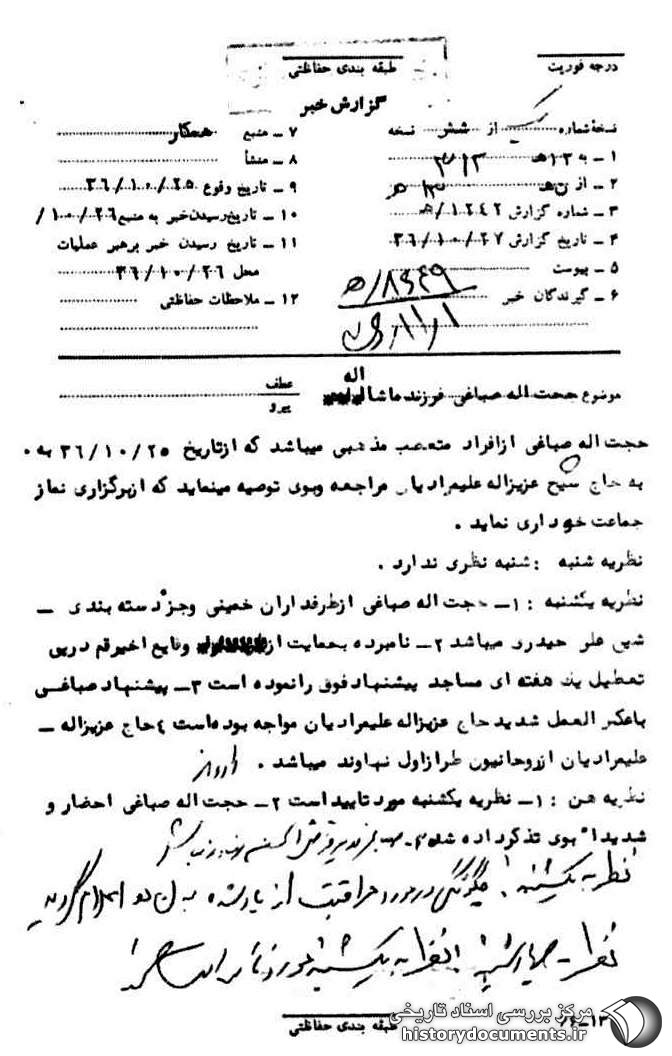 درجه فوریت
طبقه بندی حفاظتی
گزارش خبر
نسخهٔ شماره یک از شش نسخه
۱ ــ به ۱۳ ه ۳۱۲
۲ ــ از
۳ ــ شماره گزارش ۱۲۴۲/ه
۴ ــ تاریخ گزارش ۳۶/۱۰/۲۷
۵ ــ پیوست
۶ ــ گیرندگان خبر
۷ ــ منبع همکار
۸ ــ منشأ
۹ ــ تاریخ وقوع ۳۶/۱۰/۲۵
۱۰ ــ تاریخ رسیدن خبر به منبع ۱۰/۲۶/
۱۱ ــ تاریخ رسیدن خبر برهبر عملیات
محل ۳۶/۱۰/۲۶
۱۲ ــ ملاحظات حفاظتی
موضوع حجت اله صباغی فرزند ماشااله
عطف
پیرو
حجت اله صباغی ازافراد متعصب مذهبی میباشد که ازتاریخ ۳۶/۱۰/۲۵ به
به حاج شیخ عزیزاله علیمرادیان مراجعه وبوی توصیه مینماید که ازبرگزاری نماز
جماعت خودداری نماید .
نظریه شنبه : شنبه نظری ندارد .
نظریه یکشنبه : ۱ــ حجت اله صباغی ازطرفداران خمینی وجزٔ دسته بندی ــ
شیخ علی حیدری میباشد ۲ــ نامبرده بحمایت از وقایع اخیرقم درپی
تعطیل یک هفته ای مساجد پیشنهاد فوق رانموده است ۳ــ پیشنهاد صباغــی
باعکس العمل شدید حاج عزیزاله علیمرادیان مواجه بوده‌است ۴ حاج عزیزاله ــ
علیمرادیان ازروحانیون طرازاول نهاوند میباشد .
نظریه هن : ۱ــ نظریه یکشنبه مورد تاییداست ۲ــ حجت اله صباغی احضار و
شدیدا" بوی تذکرداده شد
نظریه یکشنبه : چگونگی درمورد مراقبت از یادشده به اعلام گردید
نظریه چهارشنبه : نظریه یکشنبه مورد تأیید است
طبقه بندی حفاظتی
مرکز بررسی اسناد تاریخی
historydocuments.ir